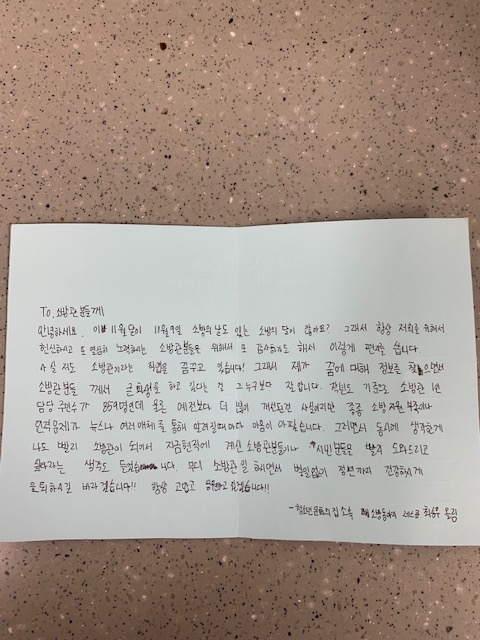 To. 소방관분들께
안녕하세요. 이번 11월달이 11월9일 소방의 날도 있는 소방의 달이 잖아요? 그래서 항상 저희를 위해서
헌신하시고 또 열심히 노력하시는 소방관분들은 위해서 또 감사하기도 해서 이렇게 편지를 씁니다.
사실 저도 소방관이라는 직업을 꿈꾸고 있습니다! 그래서 제가 꿈에 대해 정보를 찾으면서
소방관분들 께서 큰 희생을 하고 있다는 걸 그 누구보다 잘 압니다. 작년도 기준으로 소방관 1명
담당 주민수가 859명인데 물론 예전보다 더 많이 개선된건 사실이지만 종종 소방 지원 부족이나
인력문제가 뉴스나 여러 매체를 통해 알려질때마다 마음이 아팠습니다. 그러면서 동시에 생각한게
나도 빨리 소방관이 되어서 지금현직에 계신 소방관분들이나 시민분들은 빨리 도와드리고
싶다라는 생각도 니다. 부디 소방관 일 하시면서 별일없이 정년까지 건강하시게
은퇴하시길 바라겠습니다!! 항상 고맙고 응원하고 있겠습니다!!
- 청소년문화의집 소속 소방동아리 최 올림